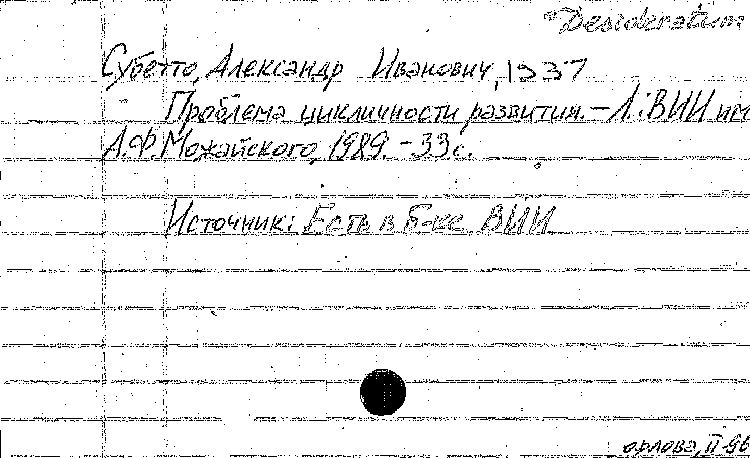 Desideratum
Субетто, Александр Иванович, 1937
Проблема цикличности развития. – Л.: ВИИ им
А.Ф. Можайского, 1989. – 33 с.
Источник: Есть в б-ке ВИИ
орлова, II-96